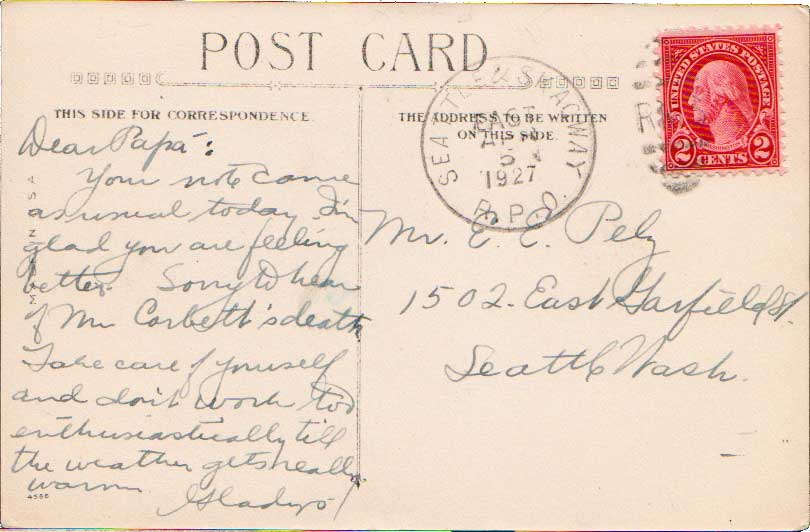 POST CARD
THIS SIDE FOR CORRESPONDENCE.
THE ADDRESS TO BE WRITTEN
ON THIS SIDE.
Dear Papa:
Your note came
as usual today. I'm
glad you are feeling
better. Sorry to hear
of Mr Corbett's death
Take care of yourself
and don't work too
enthusiastically till
the weather gets really
warm.
Gladys
4566
SEATTLE & SKAGWAY
EAST
AP
5
1927
R.P.O.
UNITED STATES POSTAGE
2 CENTS 2
Mr. E. E. Pelz
1502 East Garfield St.
Seattle Wash.